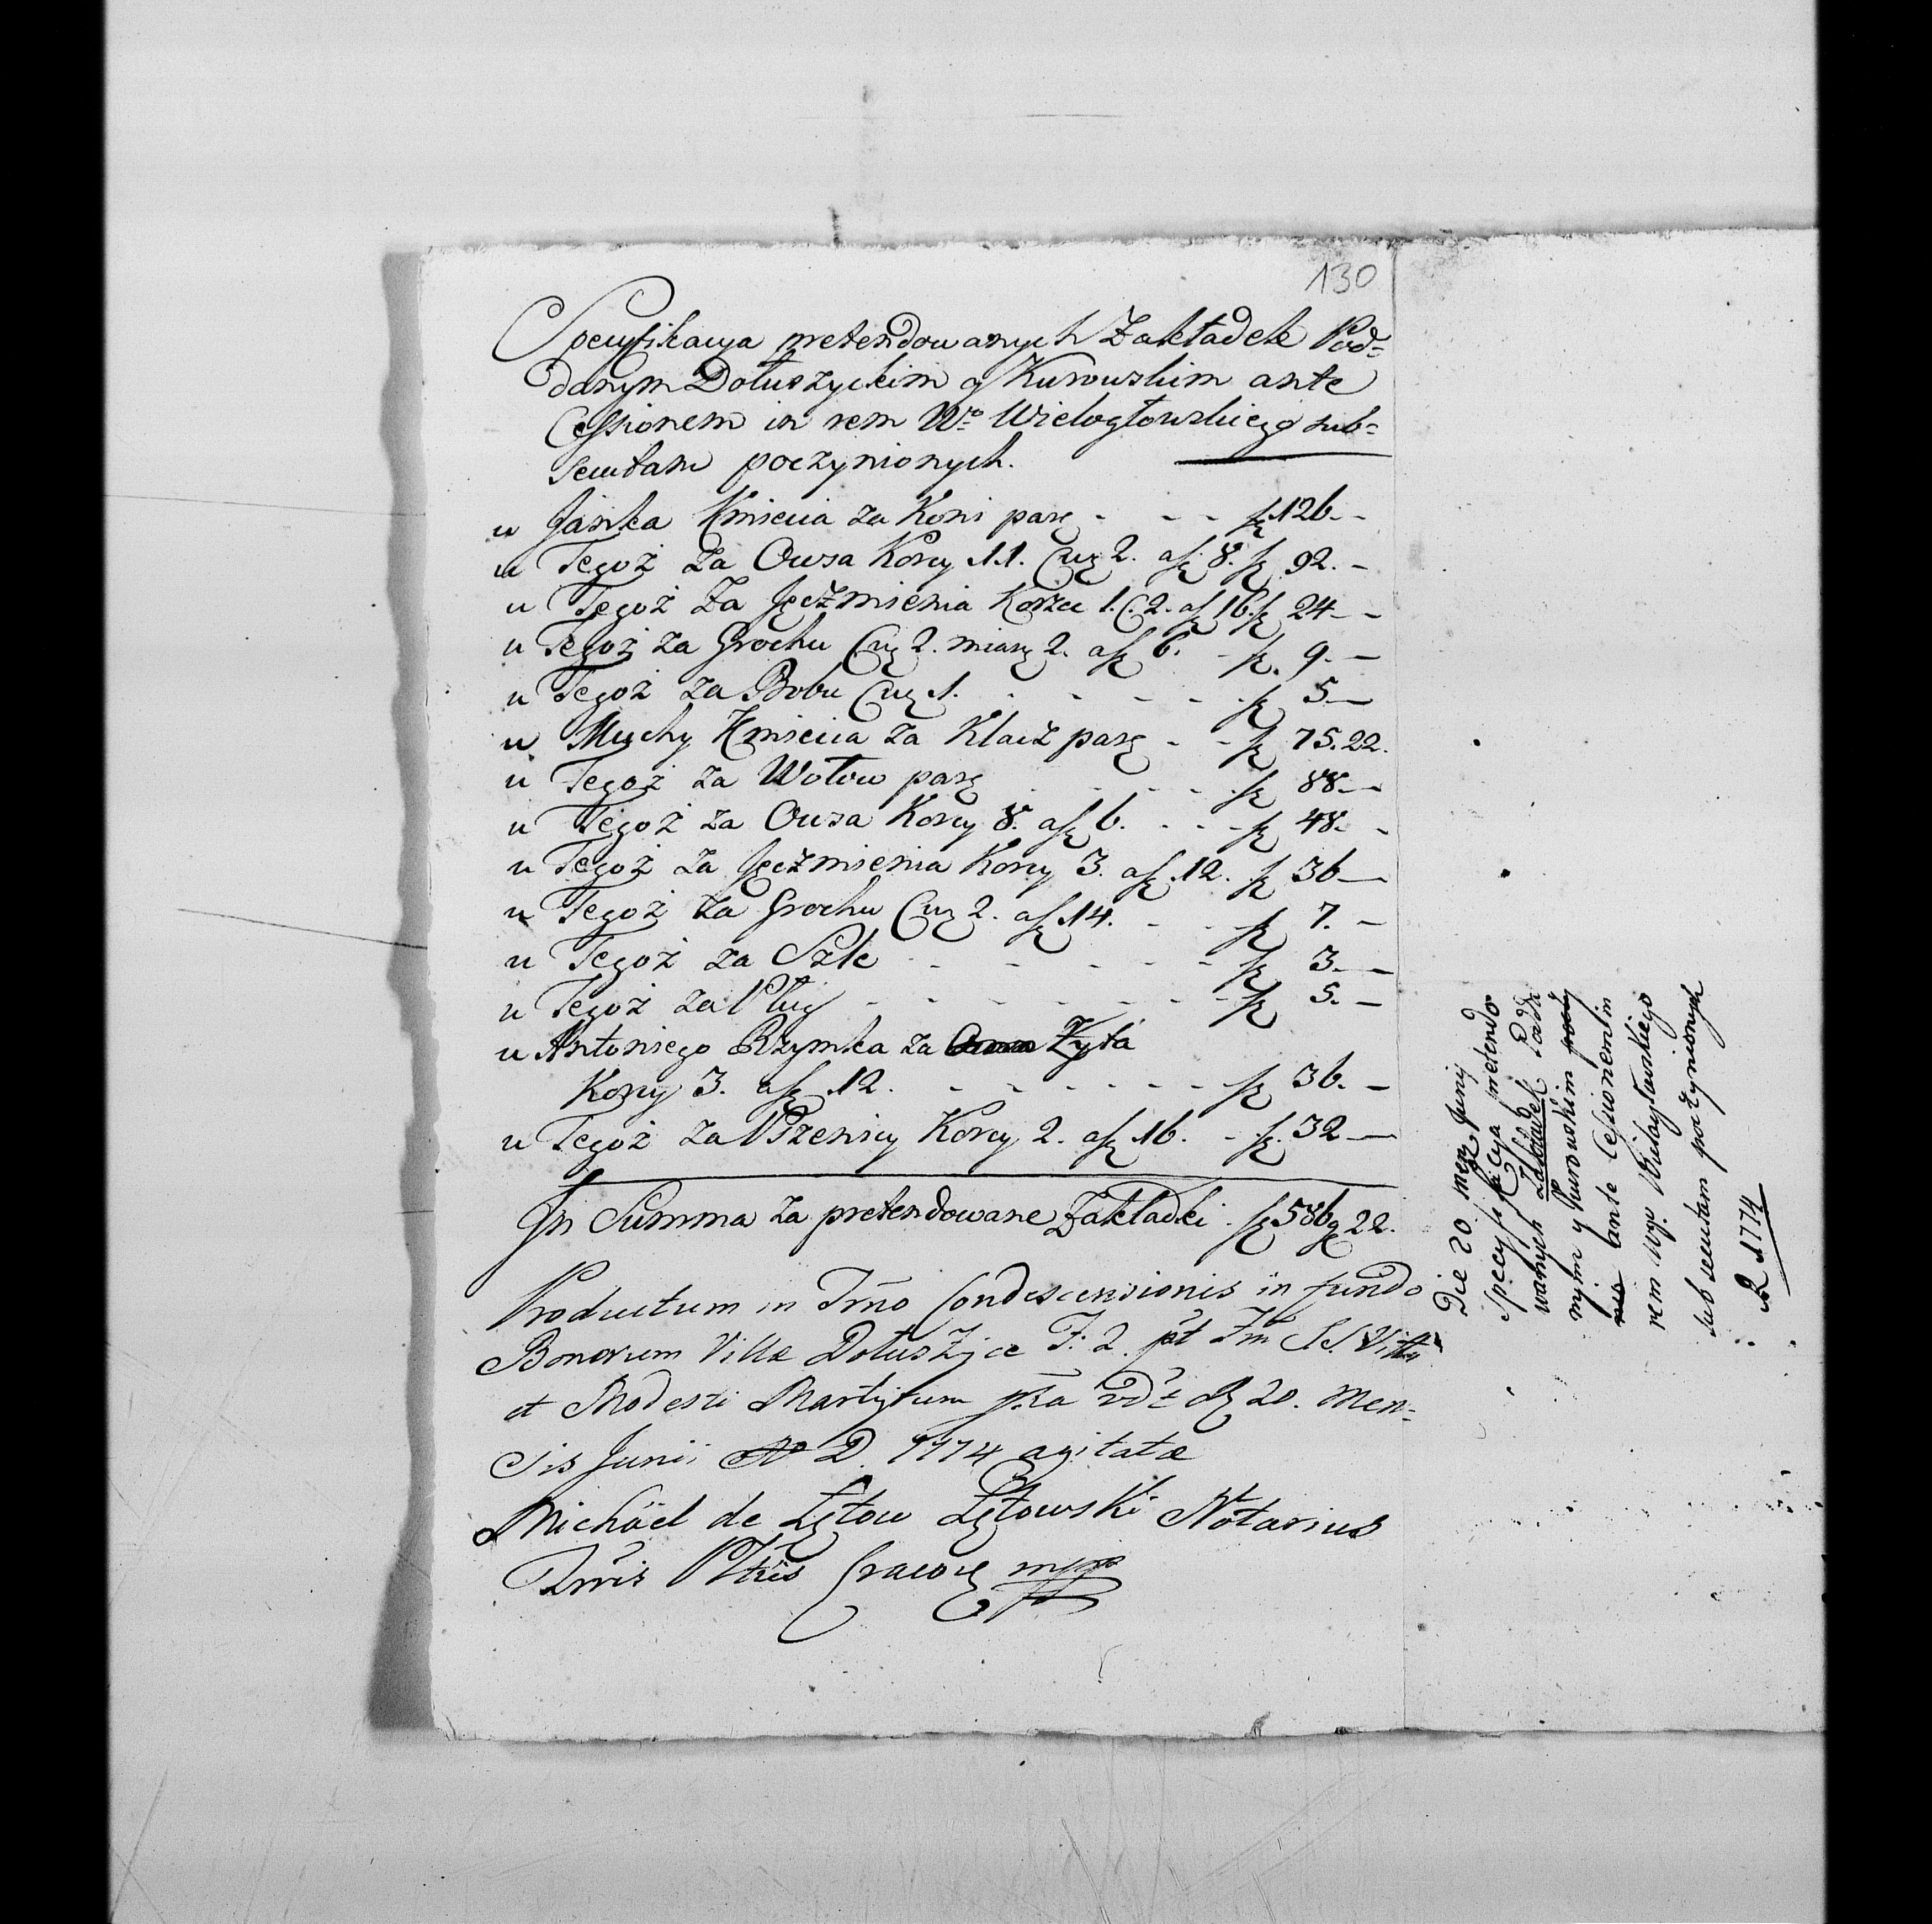 130
Specyfikacya pretendowanych Zakładek Pod=
danym Dołuszyckim y Kurowskim ante
Cessionem in rem Wo Wielogłowskiego sub=
secutam poczynionych.
u Janka Kmiecia za Koni parę - - - fl 126.-
u Tegoż za Owsa Korcy 11. Cwę 2. a fl 8. fl 92.-
u Tegoż Za Jęczmienia Korzec 1. C. 2. a fl 16. fl 24--
u Tegoż za Grochu Cwę 2. miarę 2. a fl 6. - fl. 9.-
u Tegoż za Bobu Cwę 1. - - - - fl 5-
u Muchy Kmiecia za Klacz parę - - fl 75.22.
u Tegoż za Wołow parę - - - - fl 88--
u Tegoż za Owsa Korcy 8. a fl 6. - - - fl 48.-
u Tegoż za Jęczmienia Korcy 3. a fl 12. fl 36-
u Tegoż za Grochu Cwę 2. a fl 14. - - fl 7.-
u Tegoż za Szle - - - - - - fl 3.-
u Tegoż za Pług - - - - - - - fl 5.-
u Antoniego Rzymka za Owsa Zyta
Korcy 3. a fl 12. - - - - - - fl 36.-
u Tegoż za Pszenicy Korcy 2. a fl 16. - fl. 32-
In Summa za pretendowane Zakładki fl 586 g 22.
Productum in Tmo Condescensionis in fundo
Bonorum Villæ Dołuszyce F: 2. pt Fm SS. Viti
et Modesti Martyrum 20. Men=
sis Junii Ao D. 1774 agitatæ
Michäel de Łętow Łętowski Notarius
Cracov mpp
Die 20 menę Junij
Specyfikacya pretendo
wanych Zakładek Podda
nym y Kurowskim poczy
nio ante Cessionem in
rem Wgo Wielogłowskiego
sub secutam poczynionych
R 1774